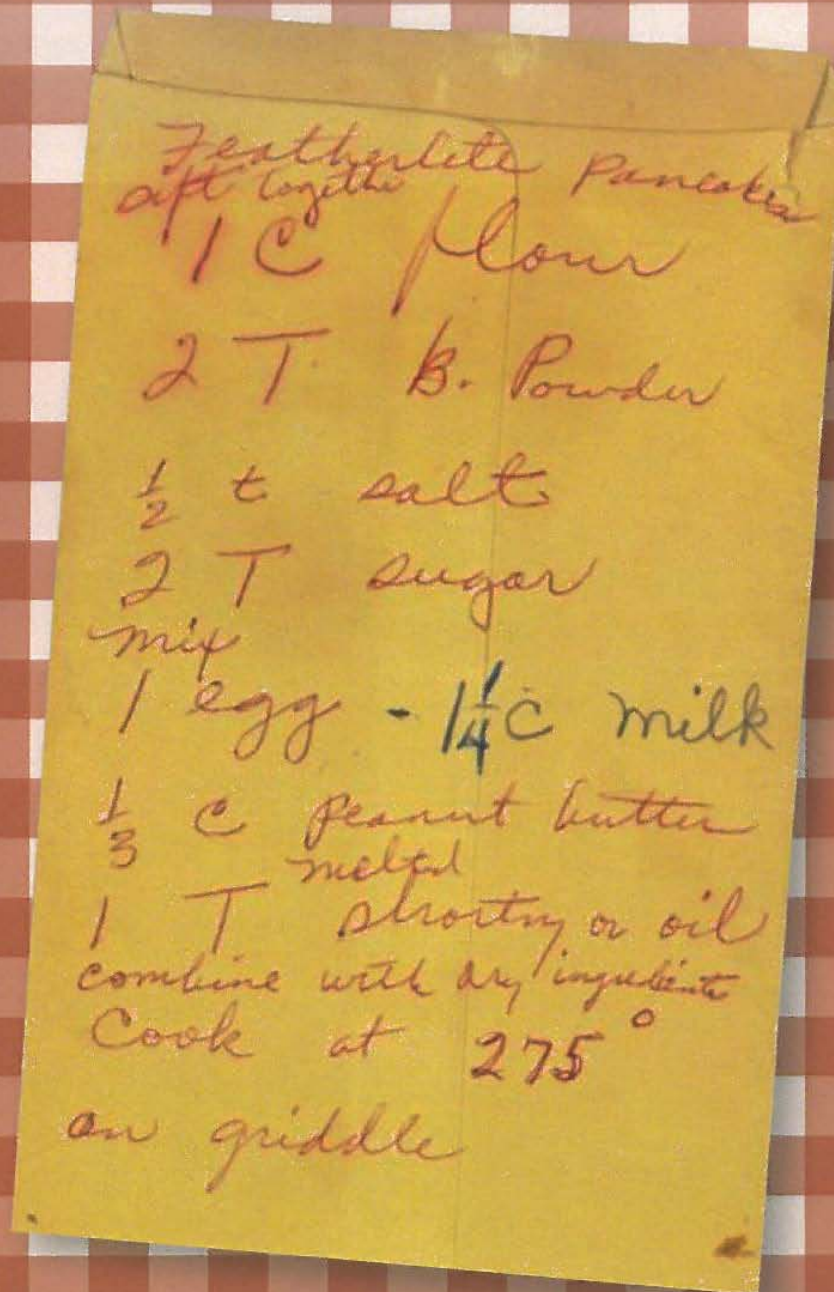 Featherlite Pancakes
sift together
1 C flour
2 T. B. Powder
1/2 t salt
2 T sugar
mix
1 egg - 1 1/4 C milk
1/3 C peanut butter
melted
1 T shortng or oil
combine with dry ingredients
Cook at 275°
on griddle